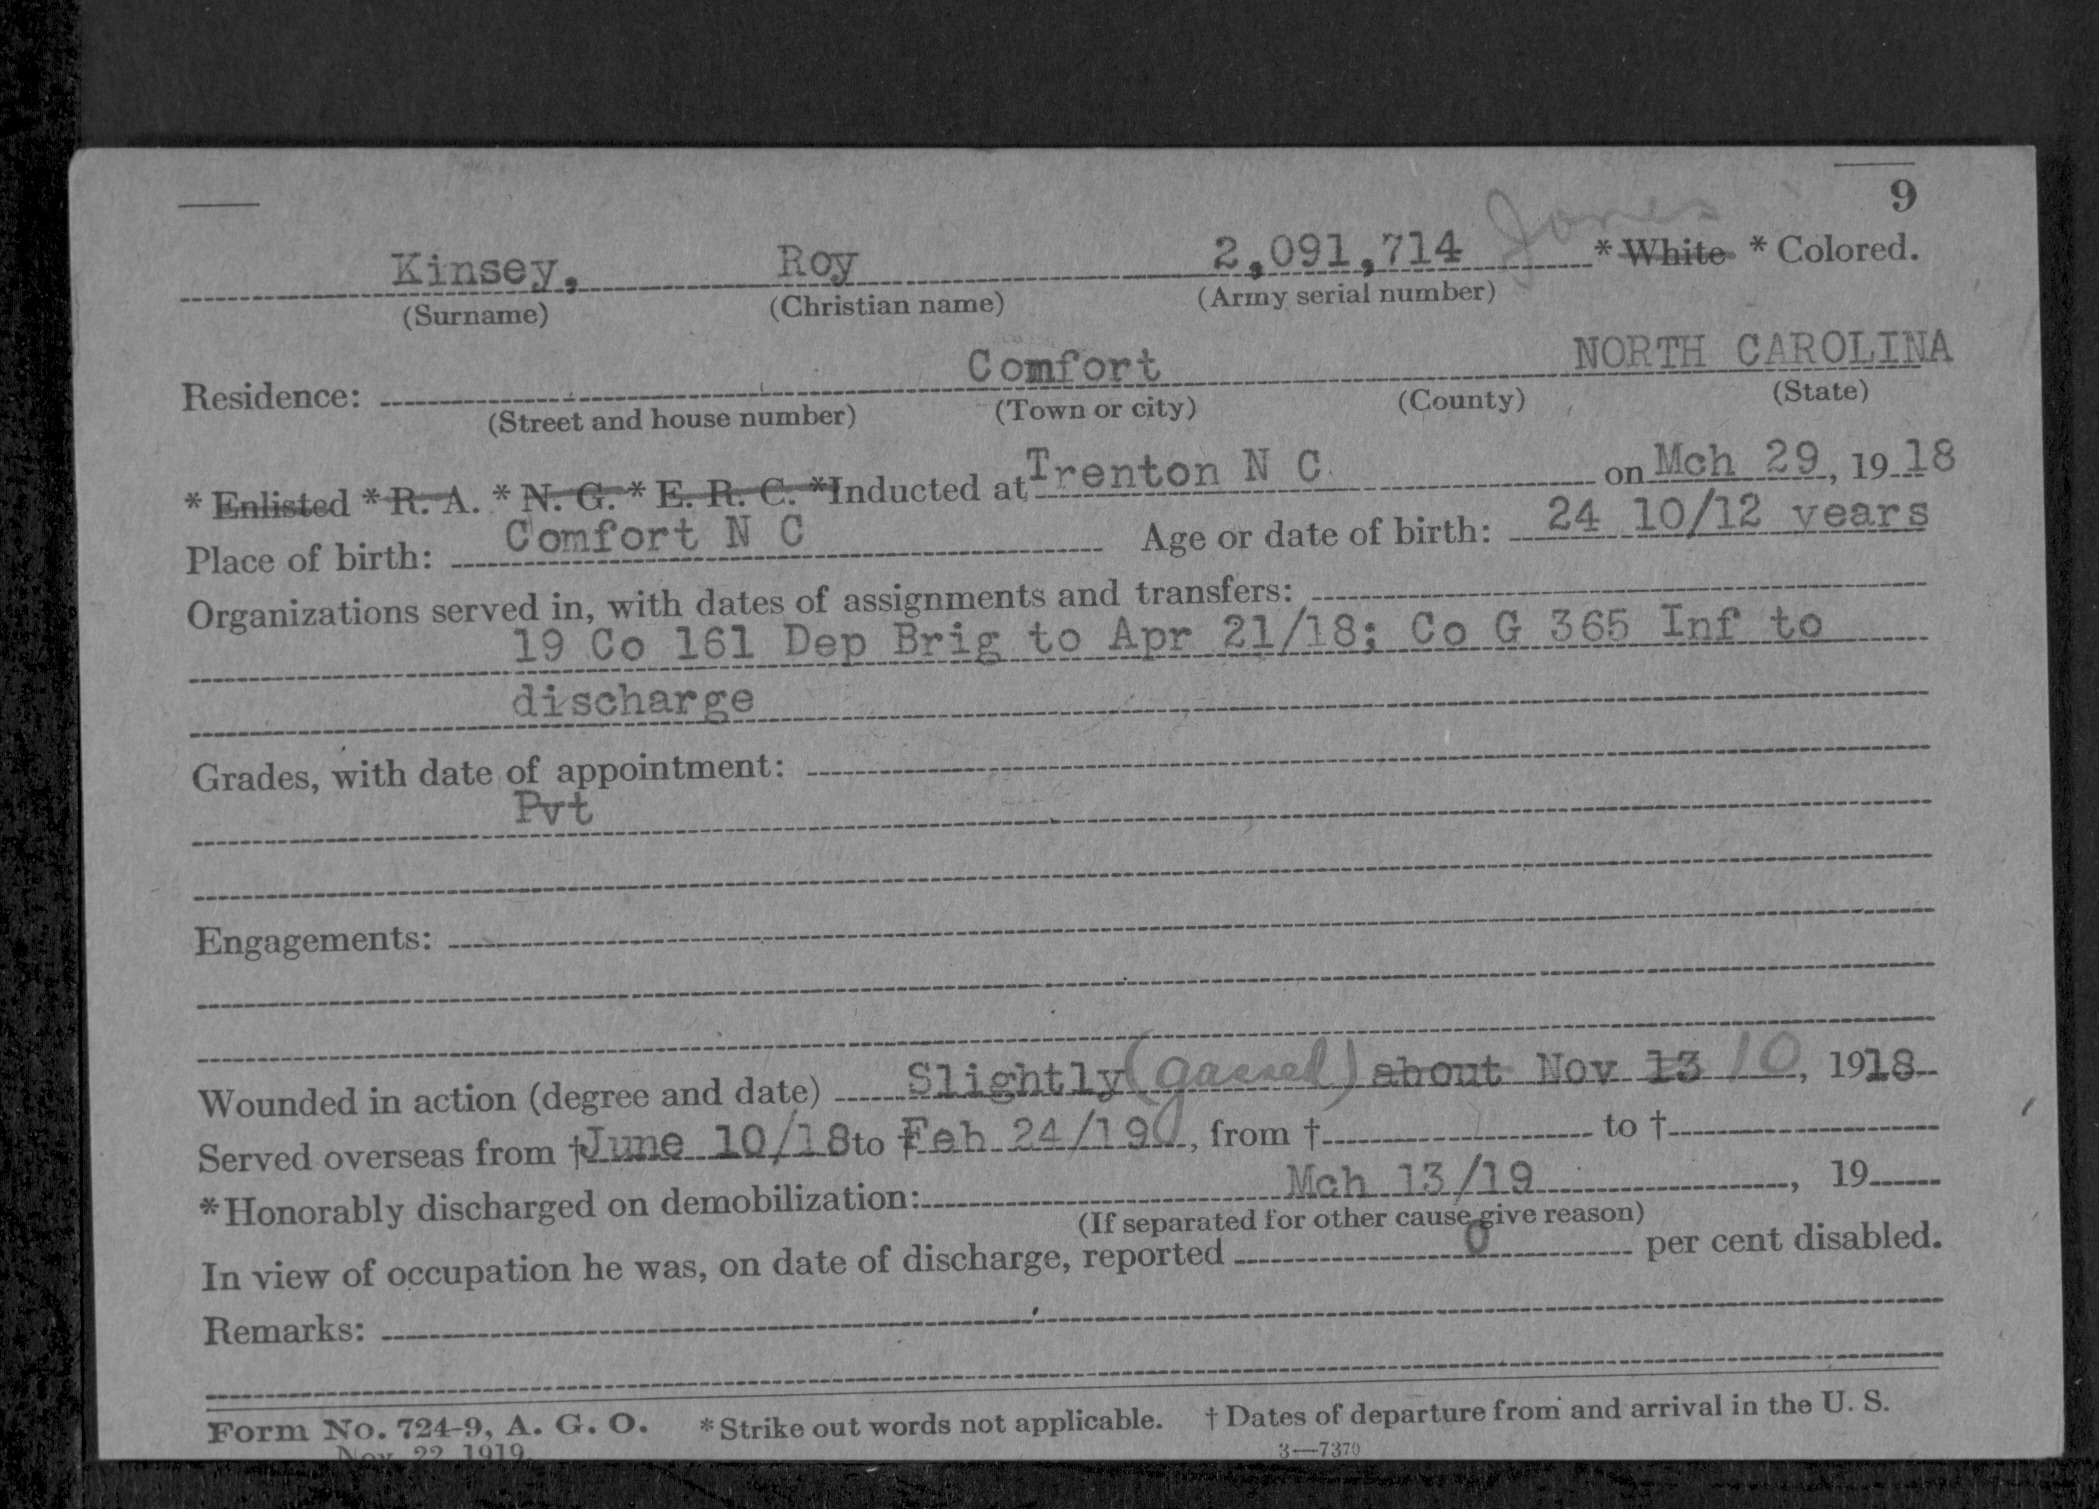 9
Jones
Kinsey, Roy 2,091,714 * White * Colored.
(Surname) (Christian name) (Army serial number)
Residence: Comfort NORTH CAROLINA
(Street and house number) (Town or city) (County) (State)
* Enlisted * R. A. * N. G. * E. R. C. *Inducted at Trenton N C on Mch 29, 1918
Place of birth: Comfort N C Age or date of birth: 24 10/12 years
Organizations served in, with dates of assignments and transfers:
19 Co 161 Dep Brig to Apr 21/18; Co G 365 Inf to
discharge
Grades, with date of appointment:
Pvt
Engagements:
Wounded in action (degree and date) Slightly (gassed) about Nov 13 10, 1918
Served overseas from †June 10/18 to †Feb 24/19, from † to †
*Honorably discharged on demobilization: Mch 13/19, 19
(If separated for other cause give reason)
In view of occupation he was, on date of discharge, reported 0 per cent disabled.
Remarks:
Form No. 724-9, A. G. O. * Strike out words not applicable. † Dates of departure from and arrival in the U. S.
Nov. 22, 1919. 3—7370